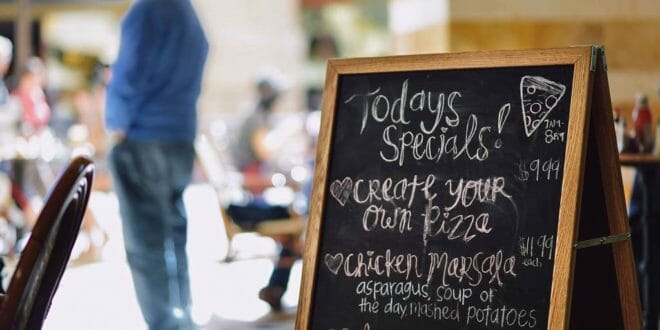 Todays
Specials!
$9.99
CREATE YOUR
Own Pizza
$11.99
each
Chicken Marsala
asparagus, soup of
the day, mashed potatoes